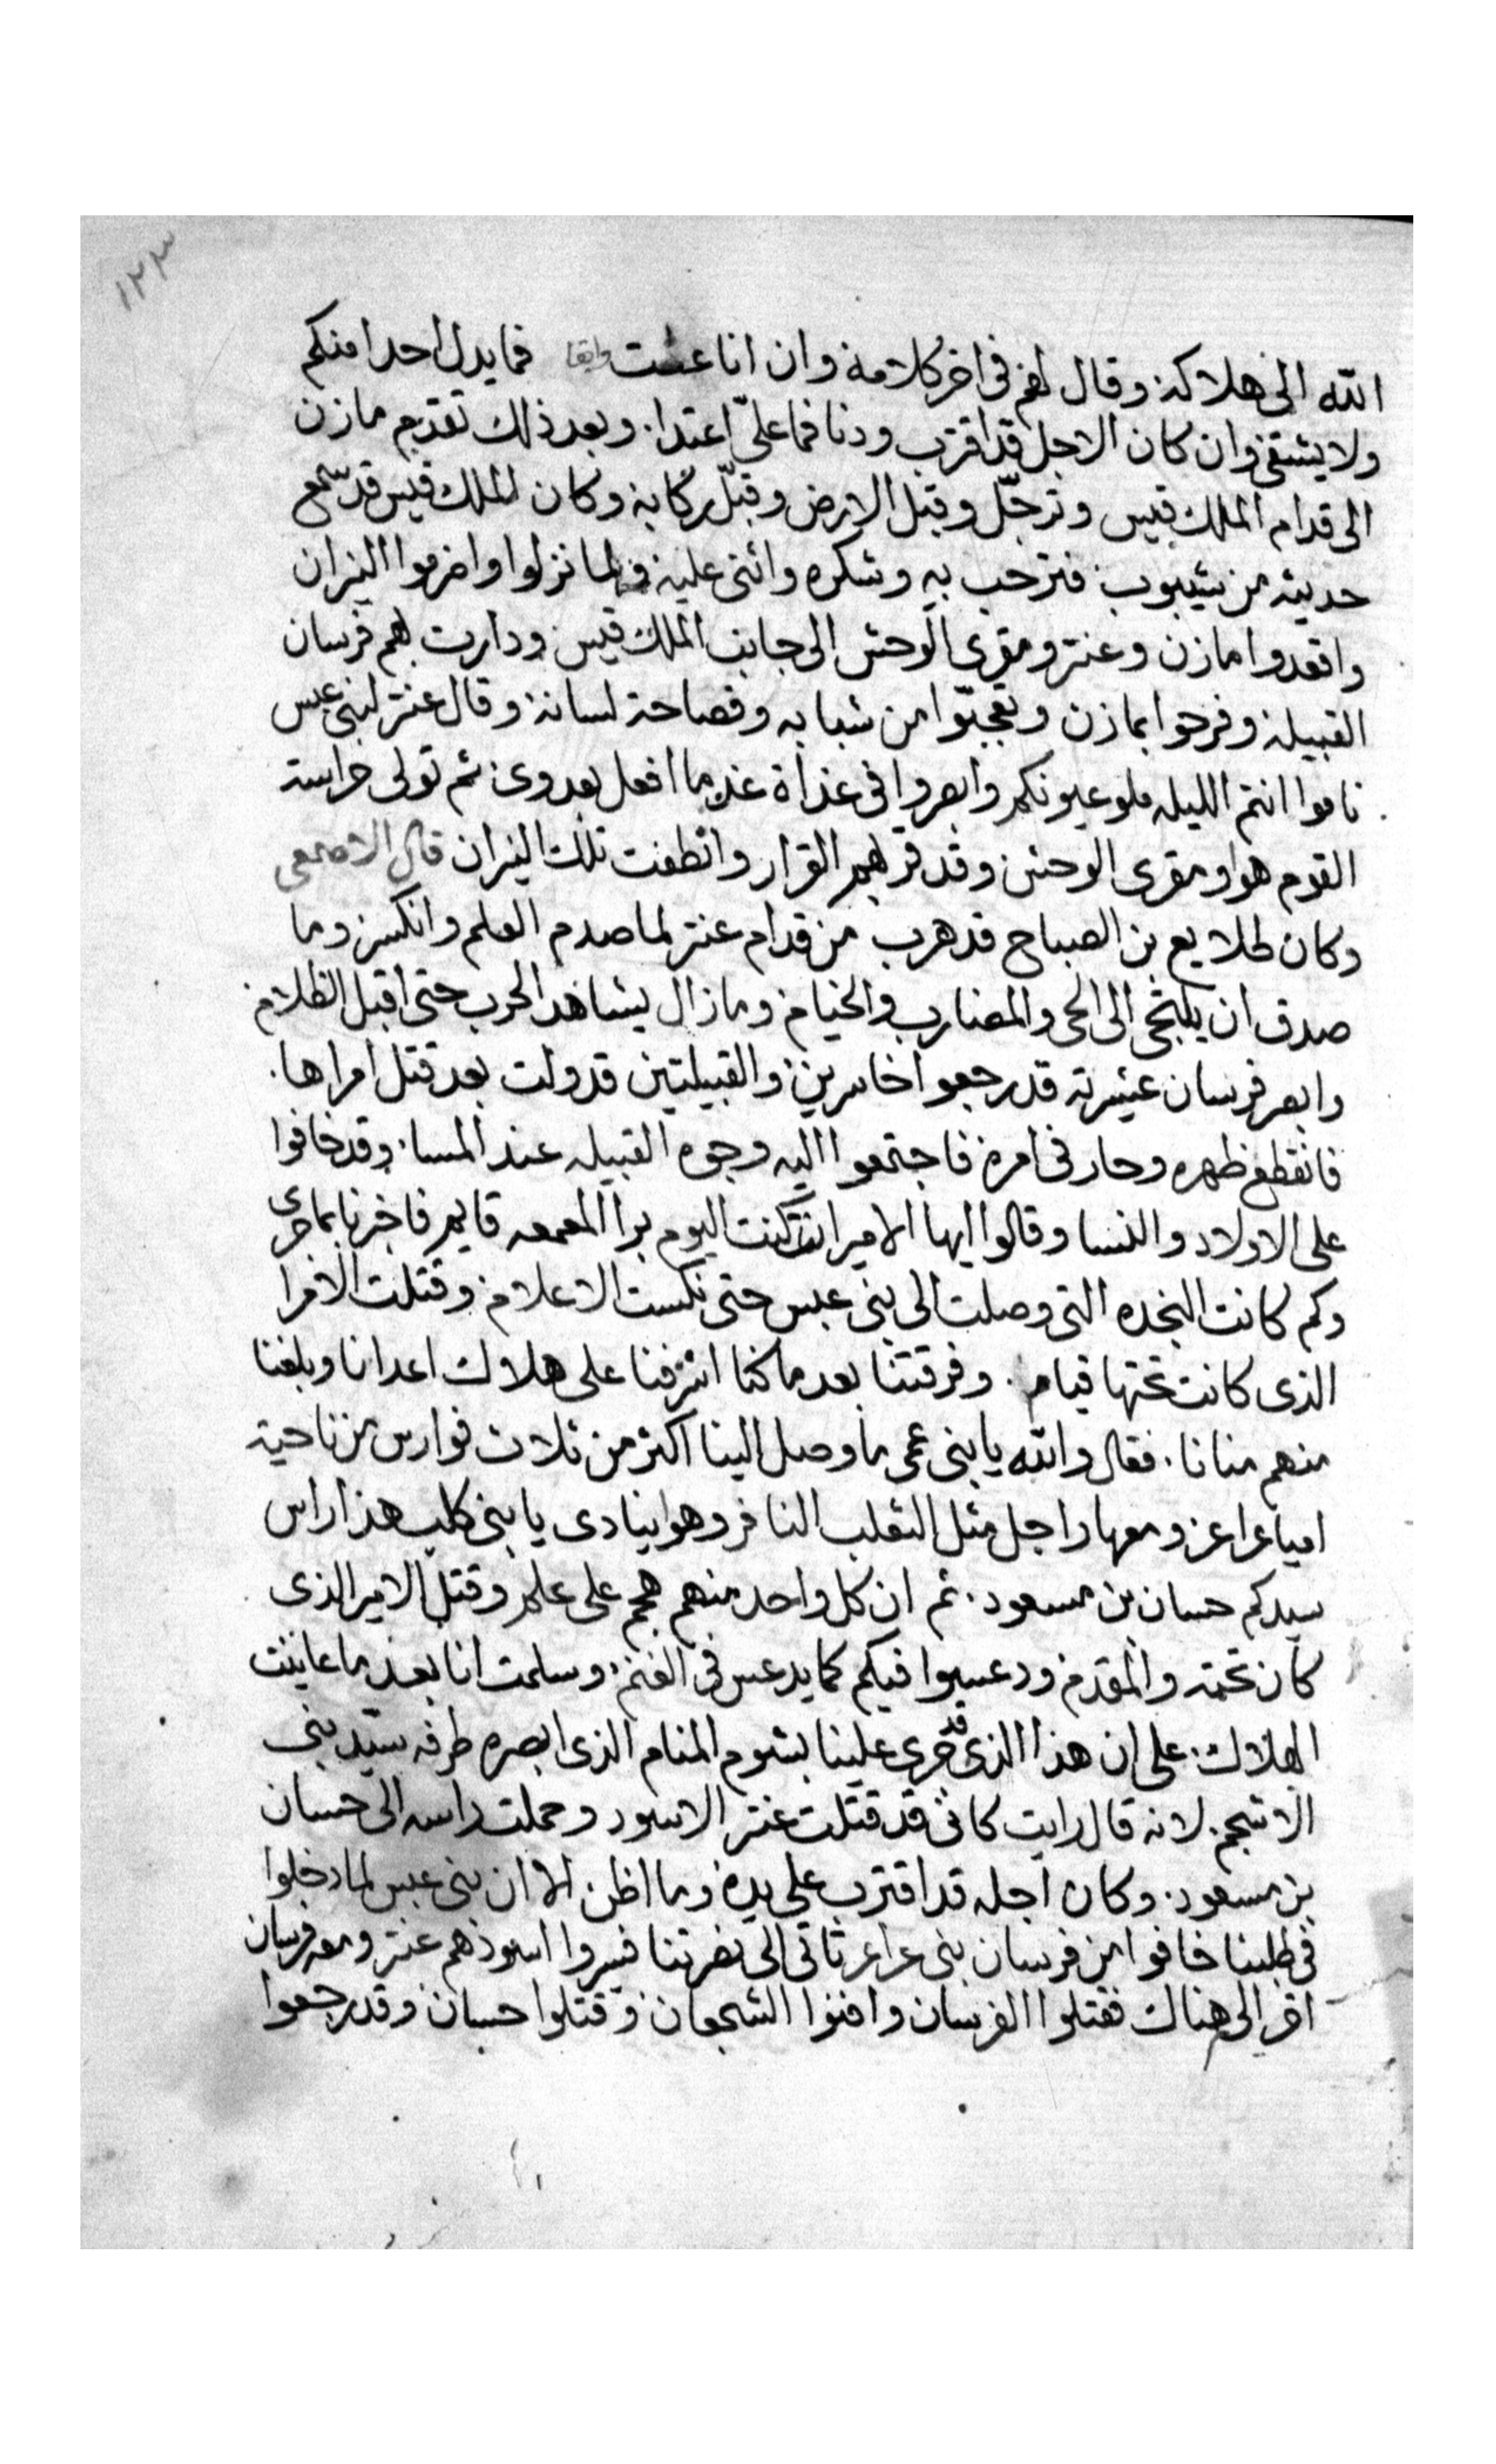 ١٢٣
الله الى هلاكه وقال لهم فى اخر كلامه وان انا عشت وابقا فما يدل احدا منكم
ولا يشقى وان كان الاجل قد اقترب ودنا فما علىّ اعتدا. وبعد ذلك تقدم مازن
الى قدام الملك قيس وترجّل وقبل الارض وقبّل ركابه وكان الملك قيس قد سمع
حديثه من شيبوب فترحب به وشكره واثنى عليه ولما نزلوا واضرموا النيران
واقعدوا مازن وعنتر ومقرى الوحش الى جانب الملك قيس ودارت بهم فرسان
القبيله وفرحوا بمازن وتعجّبوا من شبابه وفصاحة لسانه وقال عنتر لبنى عبس
ناموا انتم الليله ملو عيونكم وابصروا فى غداة غد ما افعل بعدوى ثم تولى حراسة
القوم هوا ومقرى الوحش وقد قر بهم القرار وانطفت تلك النيران قال الاصمعى
وكان طلايع بن الصباح قد هرب من قدام عنتر لما صدم العلم وانكسر وما
صدق ان يلتجى الى الحى والمضارب والخيام وما زال يشاهد الحرب حتى اقبل الظلام
وابصر فرسان عشيرته قد رجعوا خاسرين والقبيلتين قد ولت بعد قتل امراها.
فانقطع ظهره وحار فى امره فاجتمعوا اليه وجوه القبيله عند المسا. وقد خافوا
على الاولاد والنسا وقالوا ايها الامير انت كنت اليوم برا المعمعه قايم فاخبرنا بما جرى
وكم كانت النجده التى وصلت الى بنى عبس حتى نكست الاعلام وقتلت الامرا
الذى كانت تحتها قيام. وفرقتنا بعد ما كنا اشرفنا على هلاك اعدانا وبلغنا
منهم منانا. فقال والله يا بنى عمى ما وصل الينا اكثر من ثلاث فوارس من ناحية
امياعراعر ومعها راجل مثل الثعلب النافر وهوا ينادى يا بنى كلب هذا راس
سيدكم حسان بن مسعود. ثم ان كل واحد منهم هجم على علم وقتل الامير الذى
كان تحته والمقدم ودعسوا فيكم كما يدعس فى الغنم وسلمت انا بعد ما عاينت
الهلاك. على ان هذا الذى قد جرى علينا بشوم المنام الذى ابصره طرفه سيّد بنى
الاشجم. لانه قال رايت كانى قد قتلت عنتر الاسود وحملت راسه الى حسان
بن مسعود. وكان اجله قد اقترب على يده وما اظن الا ان بنى عبس لما دخلوا
فى طلبنا خافوا من فرسان بنى عراعر تاتى الى نصرتنا فسيروا اسودهم عنتر ومعه فرسان
اخر الى هناك فقتلوا الفرسان وافنوا الشجعان وقتلوا حسان وقد رجعوا